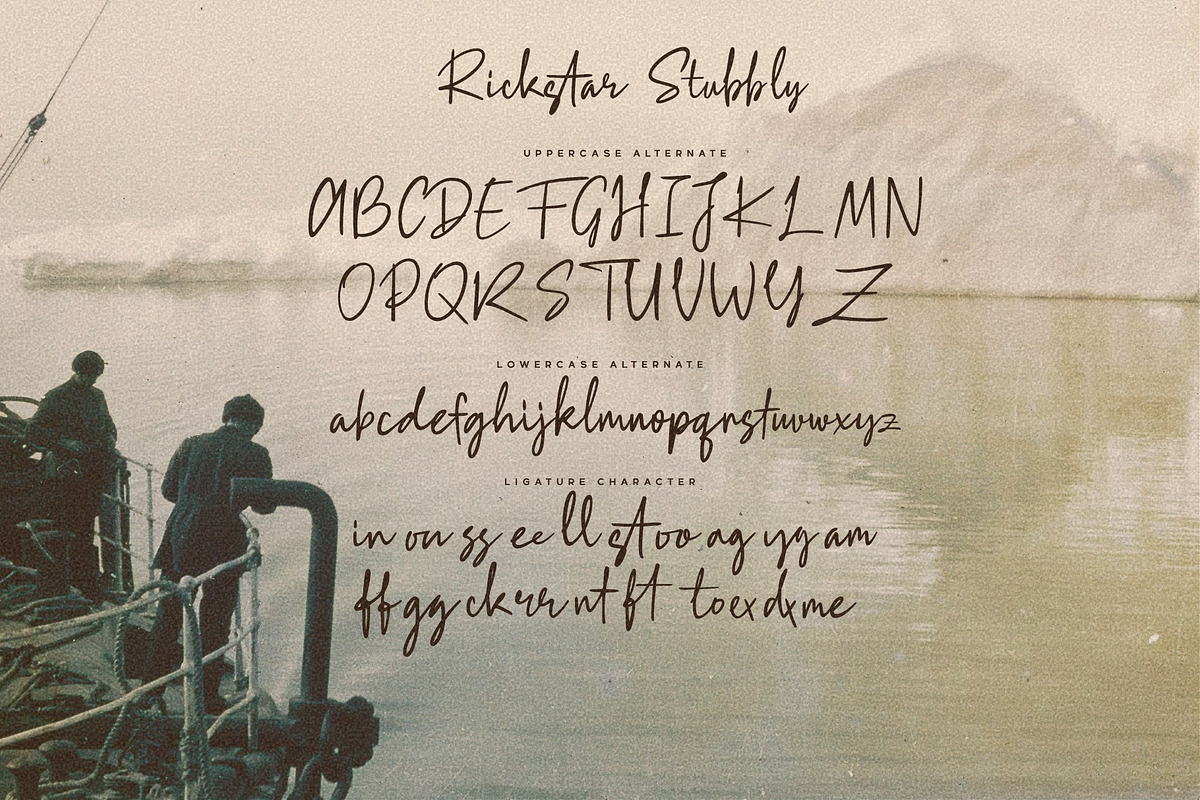 Rickstar Stubbly
UPPERCASE ALTERNATE
ABCDEFGHIJKLMN
OPQRSTUVWYZ
LOWERCASE ALTERNATE
abcdefghijklmnopqrstuvwxyz
LIGATURE CHARACTER
in on ss ee ll st oo ag yg am
ff gg ck rr nt ft to ex dx me